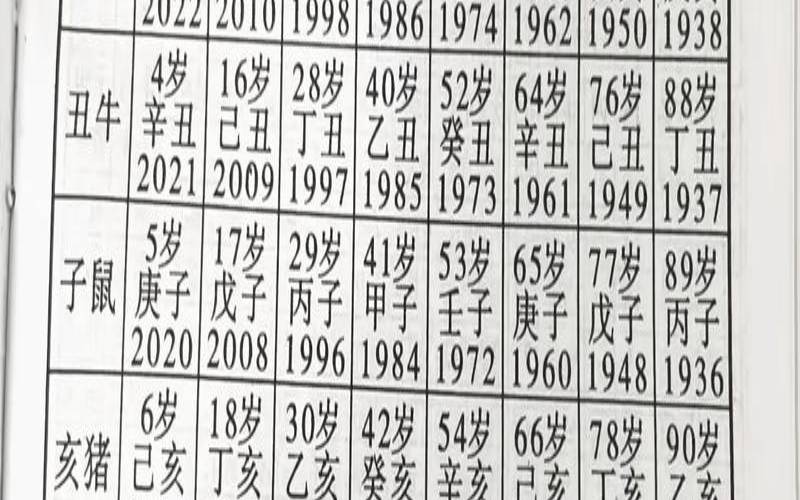 2022 2010 1998 1986 1974 1962 1950 1938
4岁 16岁 28岁 40岁 52岁 64岁 76岁 88岁
丑牛 辛丑 己丑 丁丑 乙丑 癸丑 辛丑 己丑 丁丑
2021 2009 1997 1985 1973 1961 1949 1937
5岁 17岁 29岁 41岁 53岁 65岁 77岁 89岁
子鼠 庚子 戊子 丙子 甲子 壬子 庚子 戊子 丙子
2020 2008 1996 1984 1972 1960 1948 1936
6岁 18岁 30岁 42岁 54岁 66岁 78岁 90岁
亥猪 己亥 丁亥 乙亥 癸亥 辛亥 己亥 丁亥 乙亥